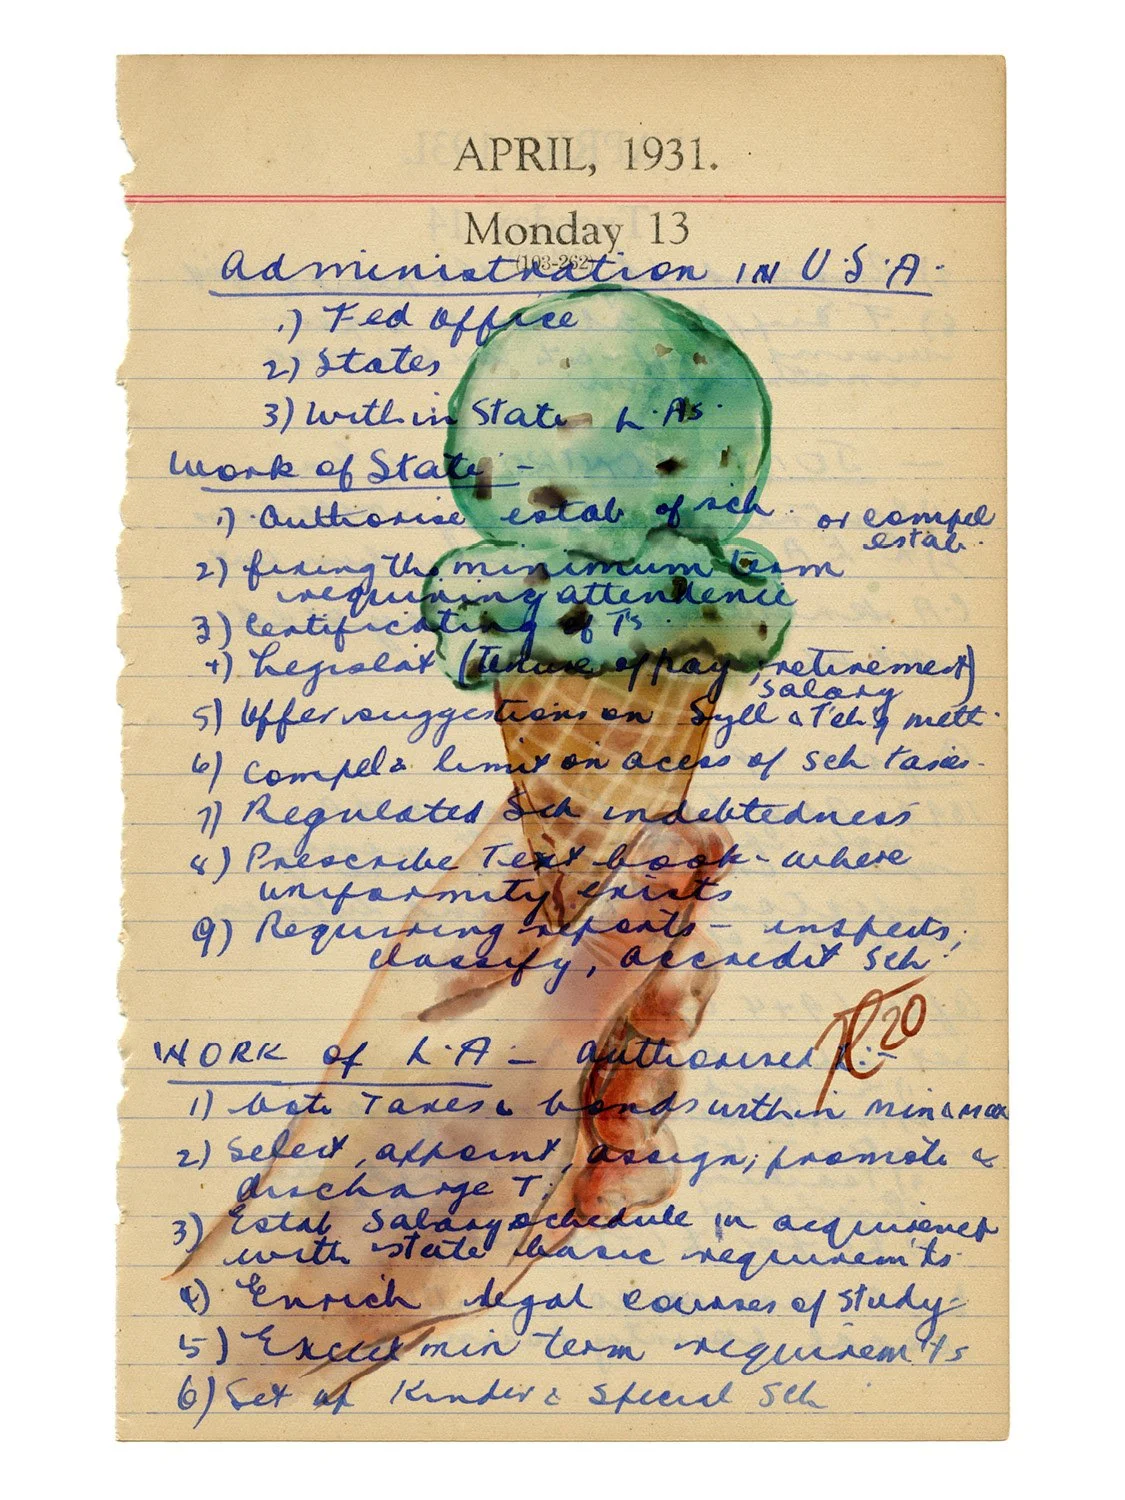 APRIL, 1931.
Monday 13
(103-262)
Administration IN U.S.A.
1) Fed Office
2) States
3) Within State L.As.
Work of State: -
1) Authorise estab of sch. or compel
estab.
2) fixing the minimum term
requiring attendence
3) Certificating of T's
4) Legislat (tenure of pay, retirement)
salary
5) Offer suggestions on Syll & Tch'g meth.
6) Compel & limit on acess of sch taxes.
7) Regulated Sch indebtedness
8) Prescribe Text book - where
uniformity exists
9) Requiring reports - inspects,
classify, accredit Sch.
R20
WORK of L.A. - authorised
1) Vote Taxes & bonds within min & max
2) Select, appoint, assign, promote &
discharge T.
3) Estab Salary schedule in
with state basic requirem'ts
4) Enrich legal courses of study
5) Exceed min term requirem'ts
6) Set up Kinder & Special Sch